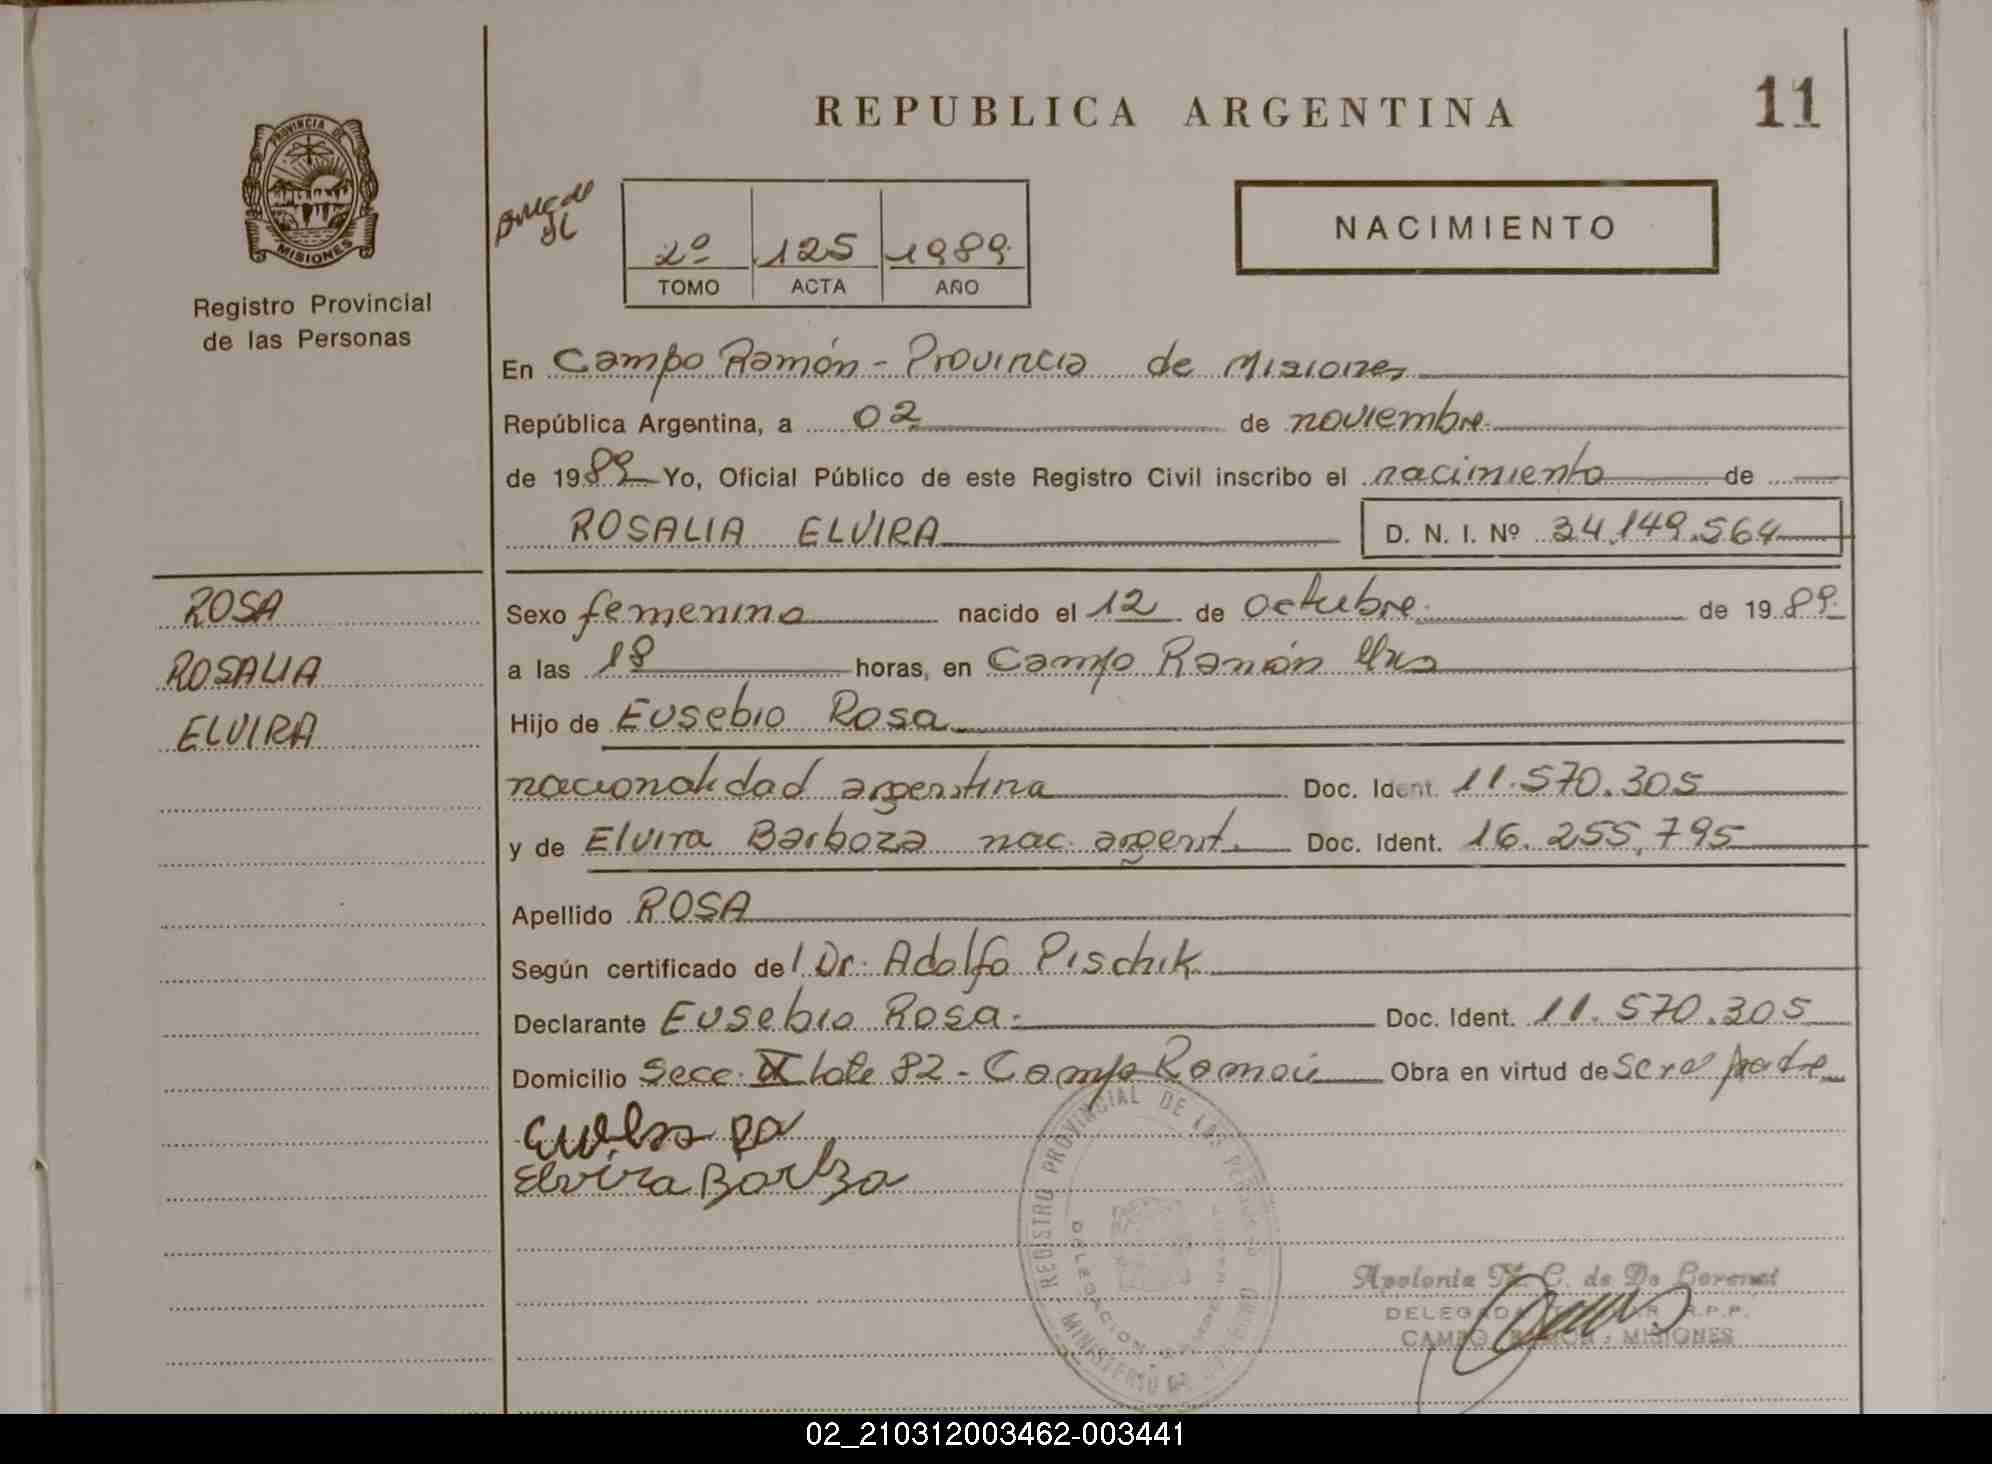 REPUBLICA ARGENTINA
11
PROVINCIA DE
MISIONES
Registro Provincial
de las Personas
2º 125 1989
TOMO ACTA AÑO
NACIMIENTO
En Campo Ramón - Provincia de Misiones
República Argentina, a 02 de noviembre
de 1989 Yo, Oficial Público de este Registro Civil inscribo el nacimiento de
ROSALIA ELVIRA D. N. I. Nº 34.149.564
ROSA
ROSALIA
ELVIRA
Sexo femenino nacido el 12 de octubre de 1989.
a las 18 horas, en Campo Ramón
Hijo de Eusebio Rosa
nacionalidad argentina Doc. Ident. 11.570.305
y de Elvira Barboza nac. argent. Doc. Ident. 16.255.795
Apellido ROSA
Según certificado del Dr. Adolfo Pischik
Declarante Eusebio Rosa. Doc. Ident. 11.570.305
Domicilio Secc. IX lote 82 - Campo Ramón Obra en virtud de ser el padre
Elvira Barboza
REGISTRO PROVINCIAL DE LAS PERSONAS
DELEGACION
MINISTERIO DE GOBIERNO
DELEGADA TITULAR R.P.P.
CAMPO RAMON - MISIONES
02_210312003462-003441